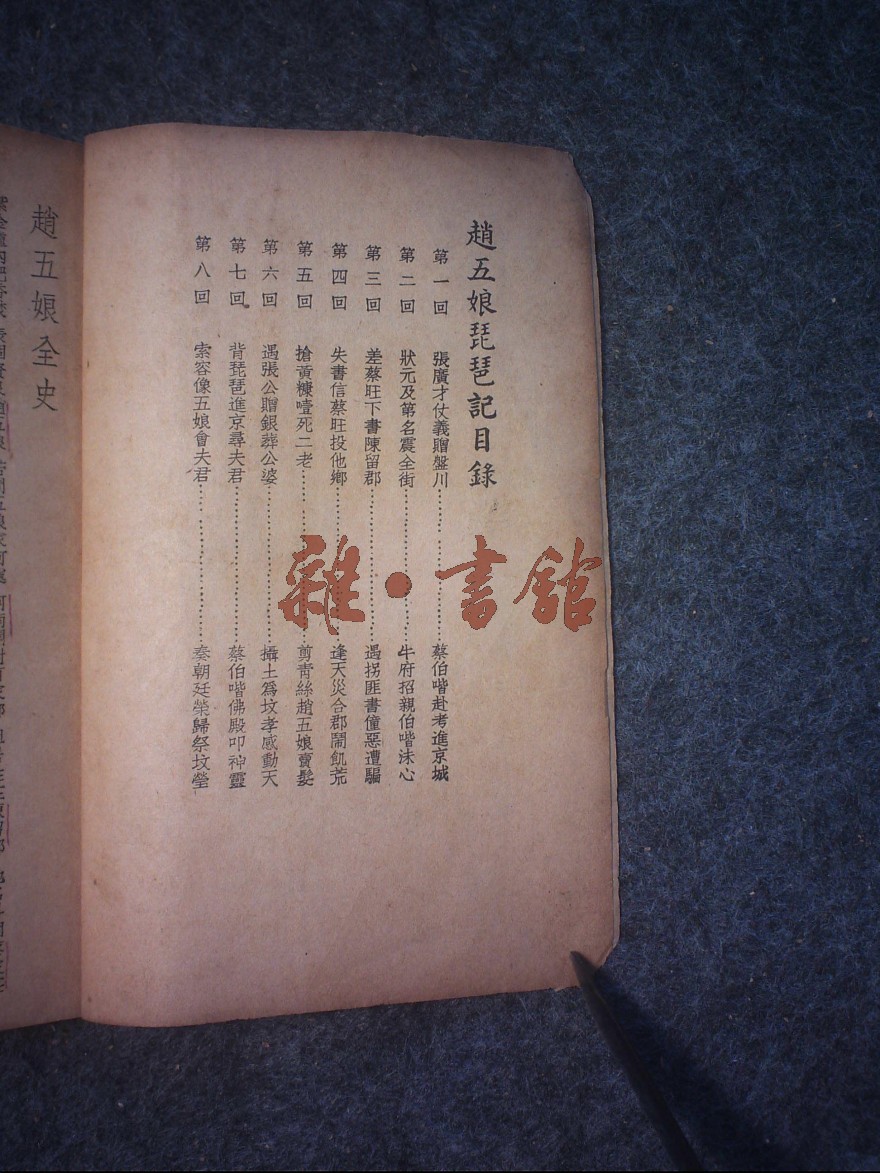 趙五娘琵琶記目錄
第一回 張廣才仗義贈盤川……蔡伯喈赴考進京城
第二回 狀元及第名震全街……牛府招親伯喈沬心
第三回 差蔡旺下書陳留郡……遇拐匪書僮惡遭騙
第四回 失書信蔡旺投他鄉……逢天災合郡鬧飢荒
第五回 搶黃糠噎死二老……剪青絲趙五娘賣髮
第六回 遇張公贈銀葬公婆……攝土爲坟孝感動天
第七回 背琵琶進京尋夫君……蔡伯喈佛殿叩神靈
第八回 索容像五娘會夫君……奏朝廷榮歸祭坟瑩
趙五娘全史
雜·書館